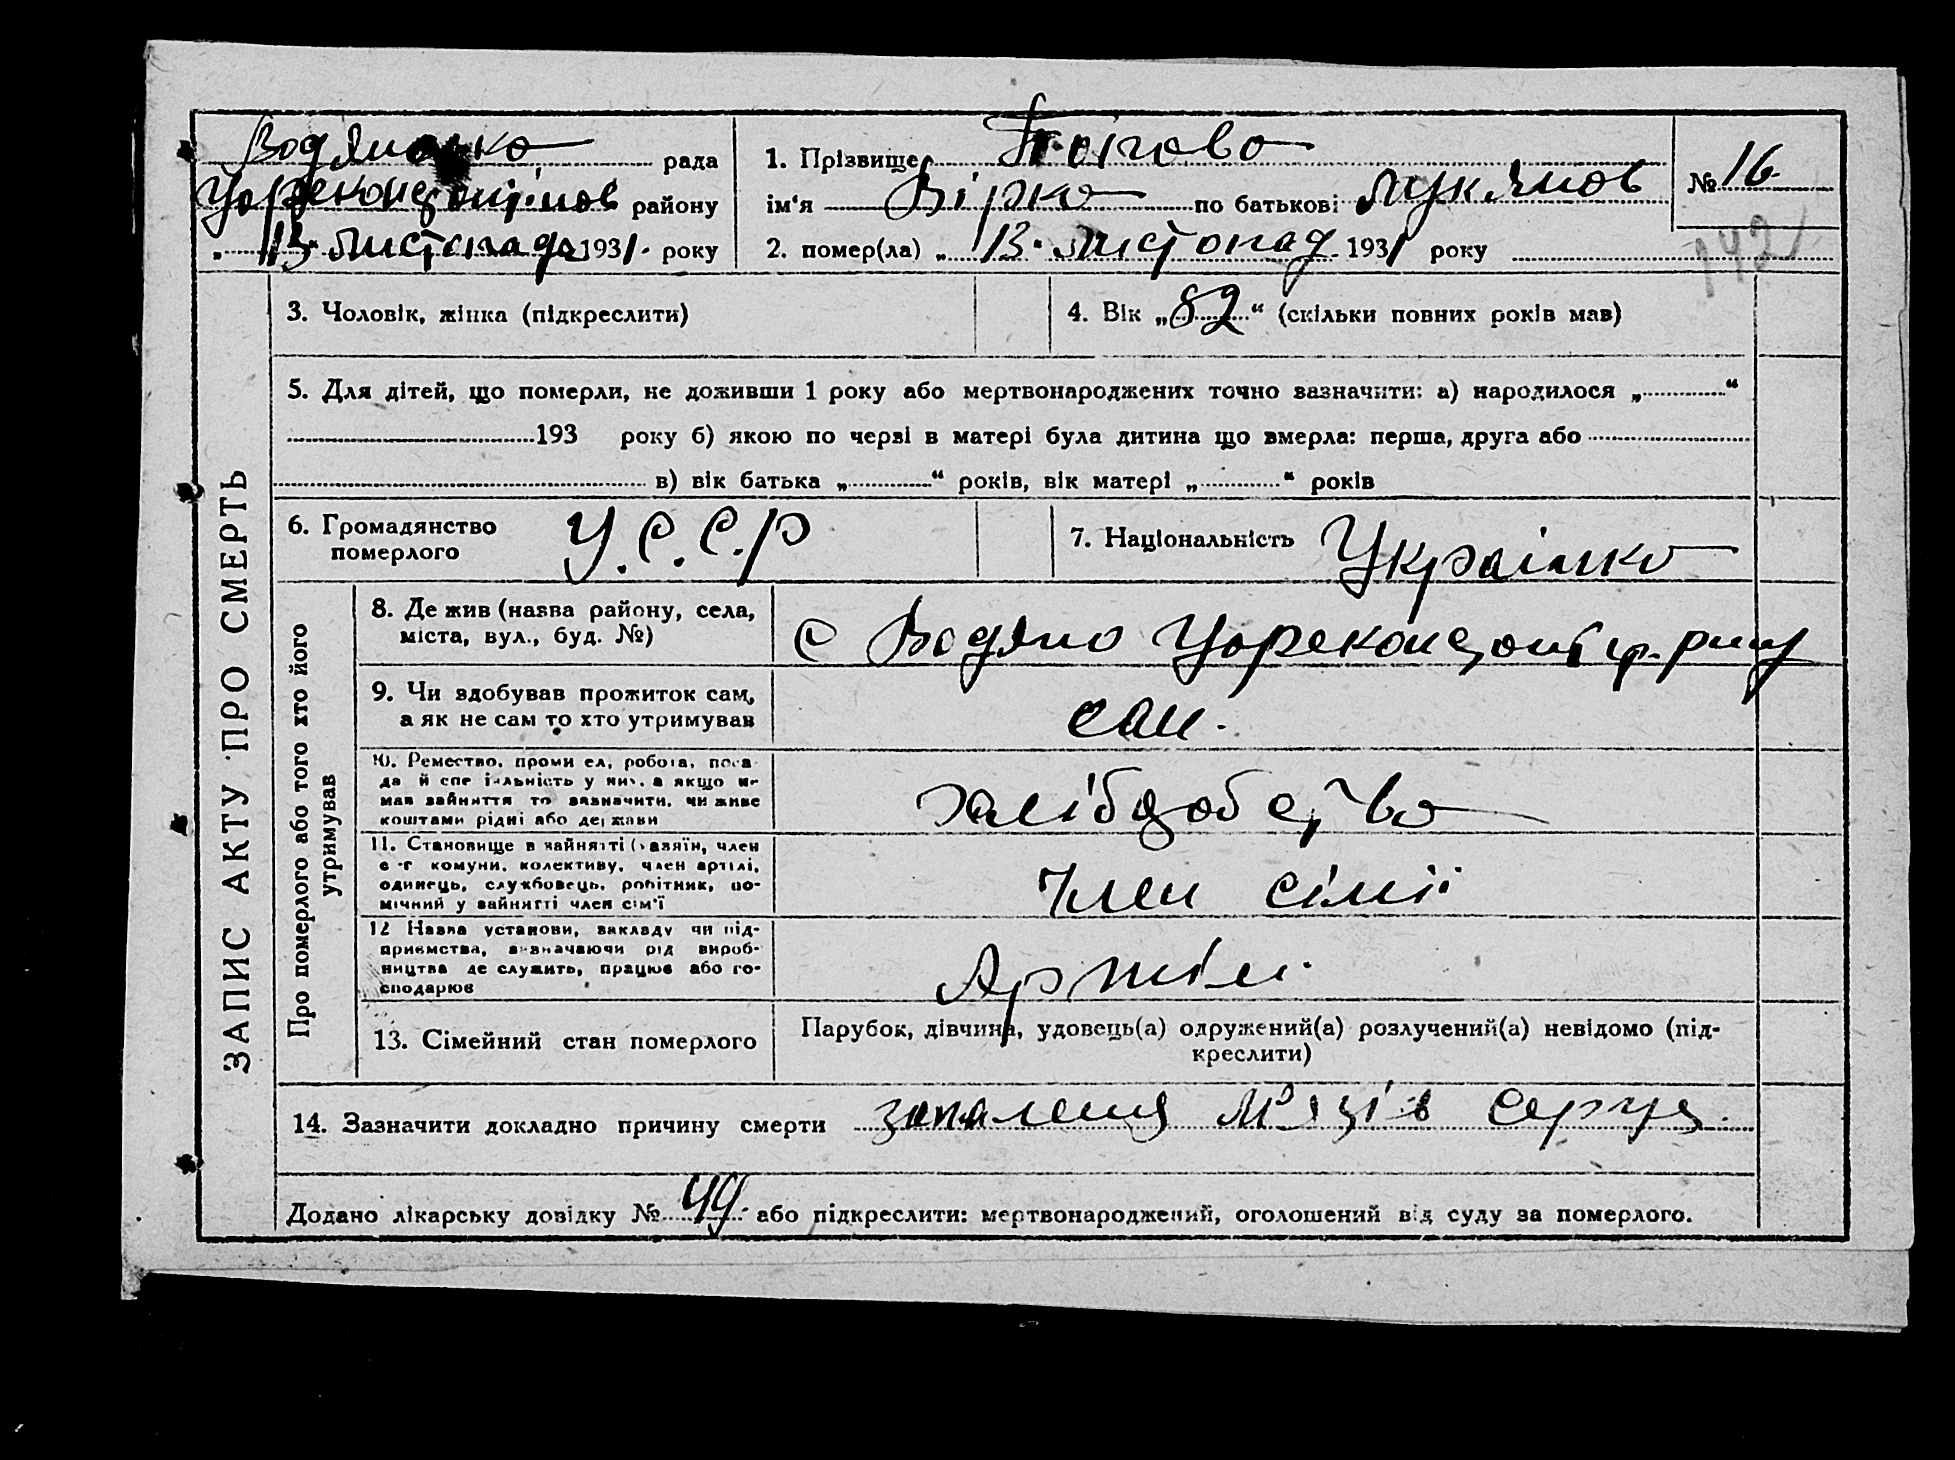 Водянська рада
району
„ 13 " листопада 1931. року
1. Прізвище
ім'я Вірка по батькові Лукянов
2. помер(ла) „ 13. листопад 1931 року
№ 16.
142
3. Чоловік, жінка (підкреслити)
4. Вік „ 82 “ (скільки повних років мав)
5. Для дітей, що померли, не доживши 1 року або мертвонароджених точно зазначити: а) народилося „ “
193 року б) якою по черзі в матері була дитина що вмерла: перша, друга або
в) вік батька „ “ років, вік матері „ “ років
6. Громадянство
померлого
У.С.С.Р
7. Національність Українка
ЗАПИС АКТУ ПРО СМЕРТЬ
Про померлого або того хто його
утримував
8. Де жив (назва району, села,
міста, вул., буд. №)
с Водяно
9. Чи здобував прожиток сам,
а як не сам то хто утримував
сам.
10. Ремество, промисел, робота, поса-
да й спеціальність у них, а якщо не
мав зайняття то зазначити, чи живе
коштами рідні або держави
11. Становище в зайнятті (хазяїн, член
с-г комуни, колективу, член артілі,
одинець, службовець, робітник, по-
мічний у зайнятті член сім'ї
Член сімї
12 Назва установи, закладу чи під-
приємства, зазначаючи рід вироб-
ництва де служить, працює або го-
сподарює
Артілі.
13. Сімейний стан померлого
Парубок, дівчина, удовець(а) одружений(а) розлучений(а) невідомо (під-
креслити)
14. Зазначити докладно причину смерти запалення мязів серця.
Додано лікарську довідку № 49. або підкреслити: мертвонароджений, оголошений від суду за померлого.